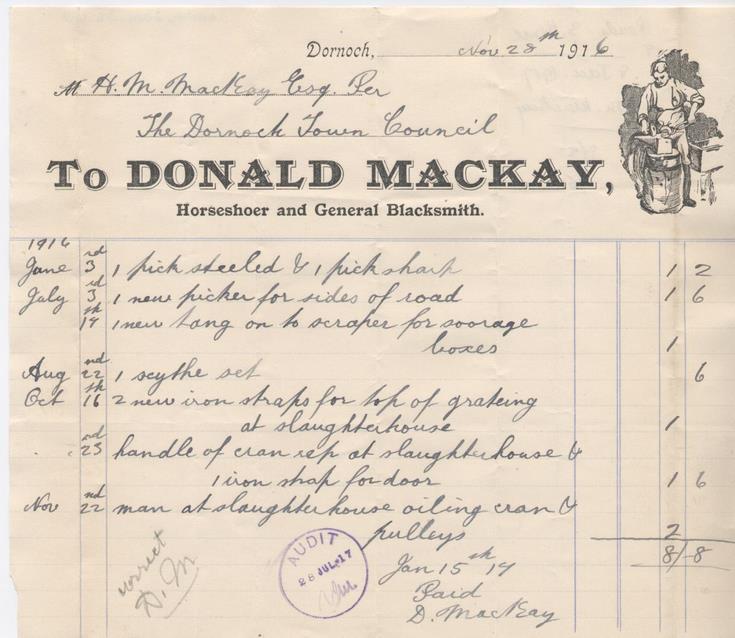 Dornoch, Nov. 28th 1916
Mr H. M. MacKay Esq. Per
The Dornoch Town Council
To DONALD MACKAY,
Horseshoer and General Blacksmith.
1916
June 3rd 1 pick steeled & 1 pick sharp 1 2
July 3rd 1 new picker for sides of road 1 6
14th 1 new tang on to scraper for soorage
boxes 1
Aug 22nd 1 scythe set 6
Oct 16th 2 new iron straps for top of grateing
at slaughterhouse 1
23rd handle of cran rep at slaughterhouse &
1 iron strap for door 1 6
Nov 22nd man at slaughterhouse oiling cran &
pulleys 2
8/-8
correct
D. M
AUDIT
28 JUL. 17
Jan 15th 17
Paid
D. MacKay